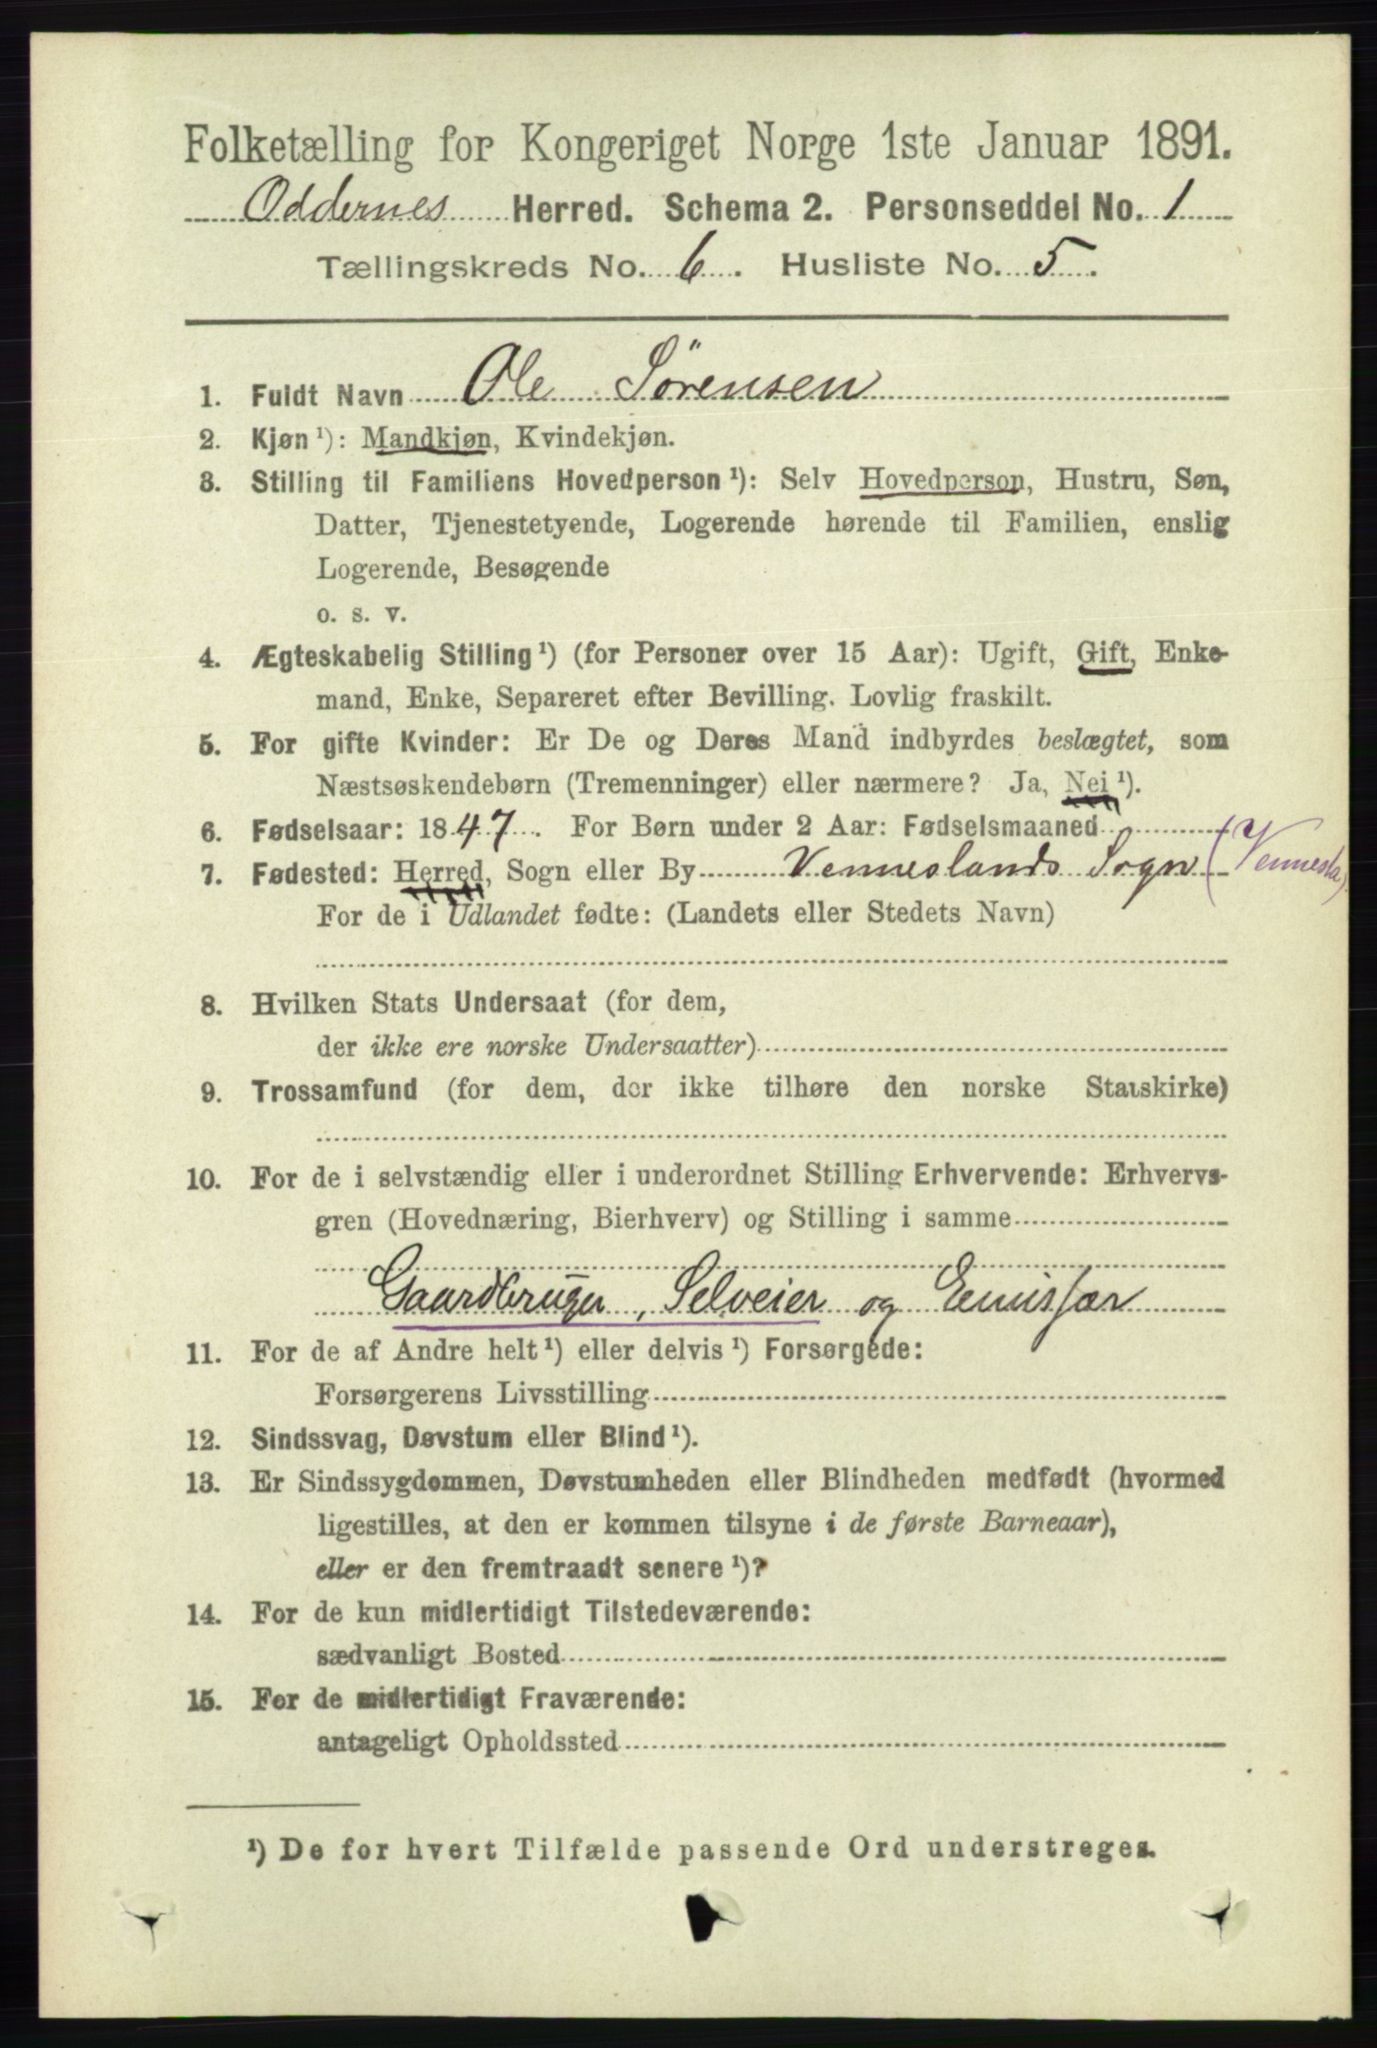 Folketælling for Kongeriget Norge 1ste Januar 1891.
Oddernes Herred. Schema 2. Personseddel No. 1
Tællingskreds No. 6. Husliste No. 5.
1. Fuldt Navn Ole Sörensen
2. Kjøn¹): Mandkjøn, Kvindekjøn.
3. Stilling til Familiens Hovedperson¹): Selv Hovedperson, Hustru, Søn,
Datter, Tjenestetyende, Logerende hørende til Familien, enslig
Logerende, Besøgende
o. s. v.
4. Ægteskabelig Stilling¹) (for Personer over 15 Aar): Ugift, Gift, Enke-
mand, Enke, Separeret efter Bevilling. Lovlig fraskilt.
5. For gifte Kvinder: Er De og Deres Mand indbyrdes beslægtet, som
Næstsøskendebørn (Tremenninger) eller nærmere? Ja, Nei¹).
6. Fødselsaar: 1847. For Børn under 2 Aar: Fødselsmaaned
7. Fødested: Herred, Sogn eller By Venneslands Sogn (Vennesla)
For de i Udlandet fødte: (Landets eller Stedets Navn)
8. Hvilken Stats Undersaat (for dem,
der ikke ere norske Undersaatter)
9. Trossamfund (for dem, der ikke tilhøre den norske Statskirke)
10. For de i selvstændig eller i underordnet Stilling Erhvervende: Erhvervs-
gren (Hovednæring, Bierhverv) og Stilling i samme
Gaardbruger, Selveier og Emissær
11. For de af Andre helt¹) eller delvis¹) Forsørgede:
Forsørgerens Livsstilling
12. Sindssvag, Døvstum eller Blind¹).
13. Er Sindssygdommen, Døvstumheden eller Blindheden medfødt (hvormed
ligestilles, at den er kommen tilsyne i de første Barneaar),
eller er den fremtraadt senere¹)?
14. For de kun midlertidigt Tilstedeværende:
sædvanligt Bosted
15. For de midlertidigt Fraværende:
antageligt Opholdssted
¹) De for hvert Tilfælde passende Ord understreges.